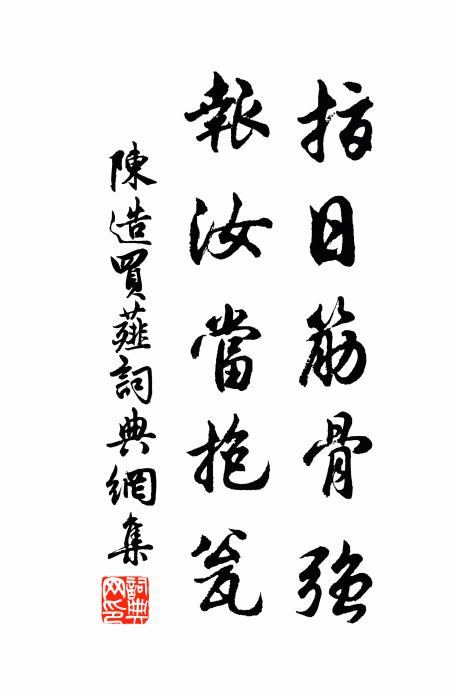 指日筋骨強
報汝當抱瓮
陳造買薤詞典網集
詞典網印